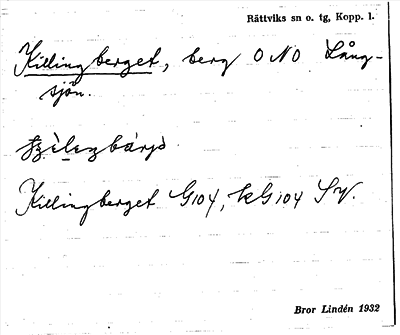 Rättviks sn o. tg, Kopp. l.
Killingberget, berg O NO Lång-
sjön.
Killingberget G104, kG104 Sv.
Bror Lindén 1932